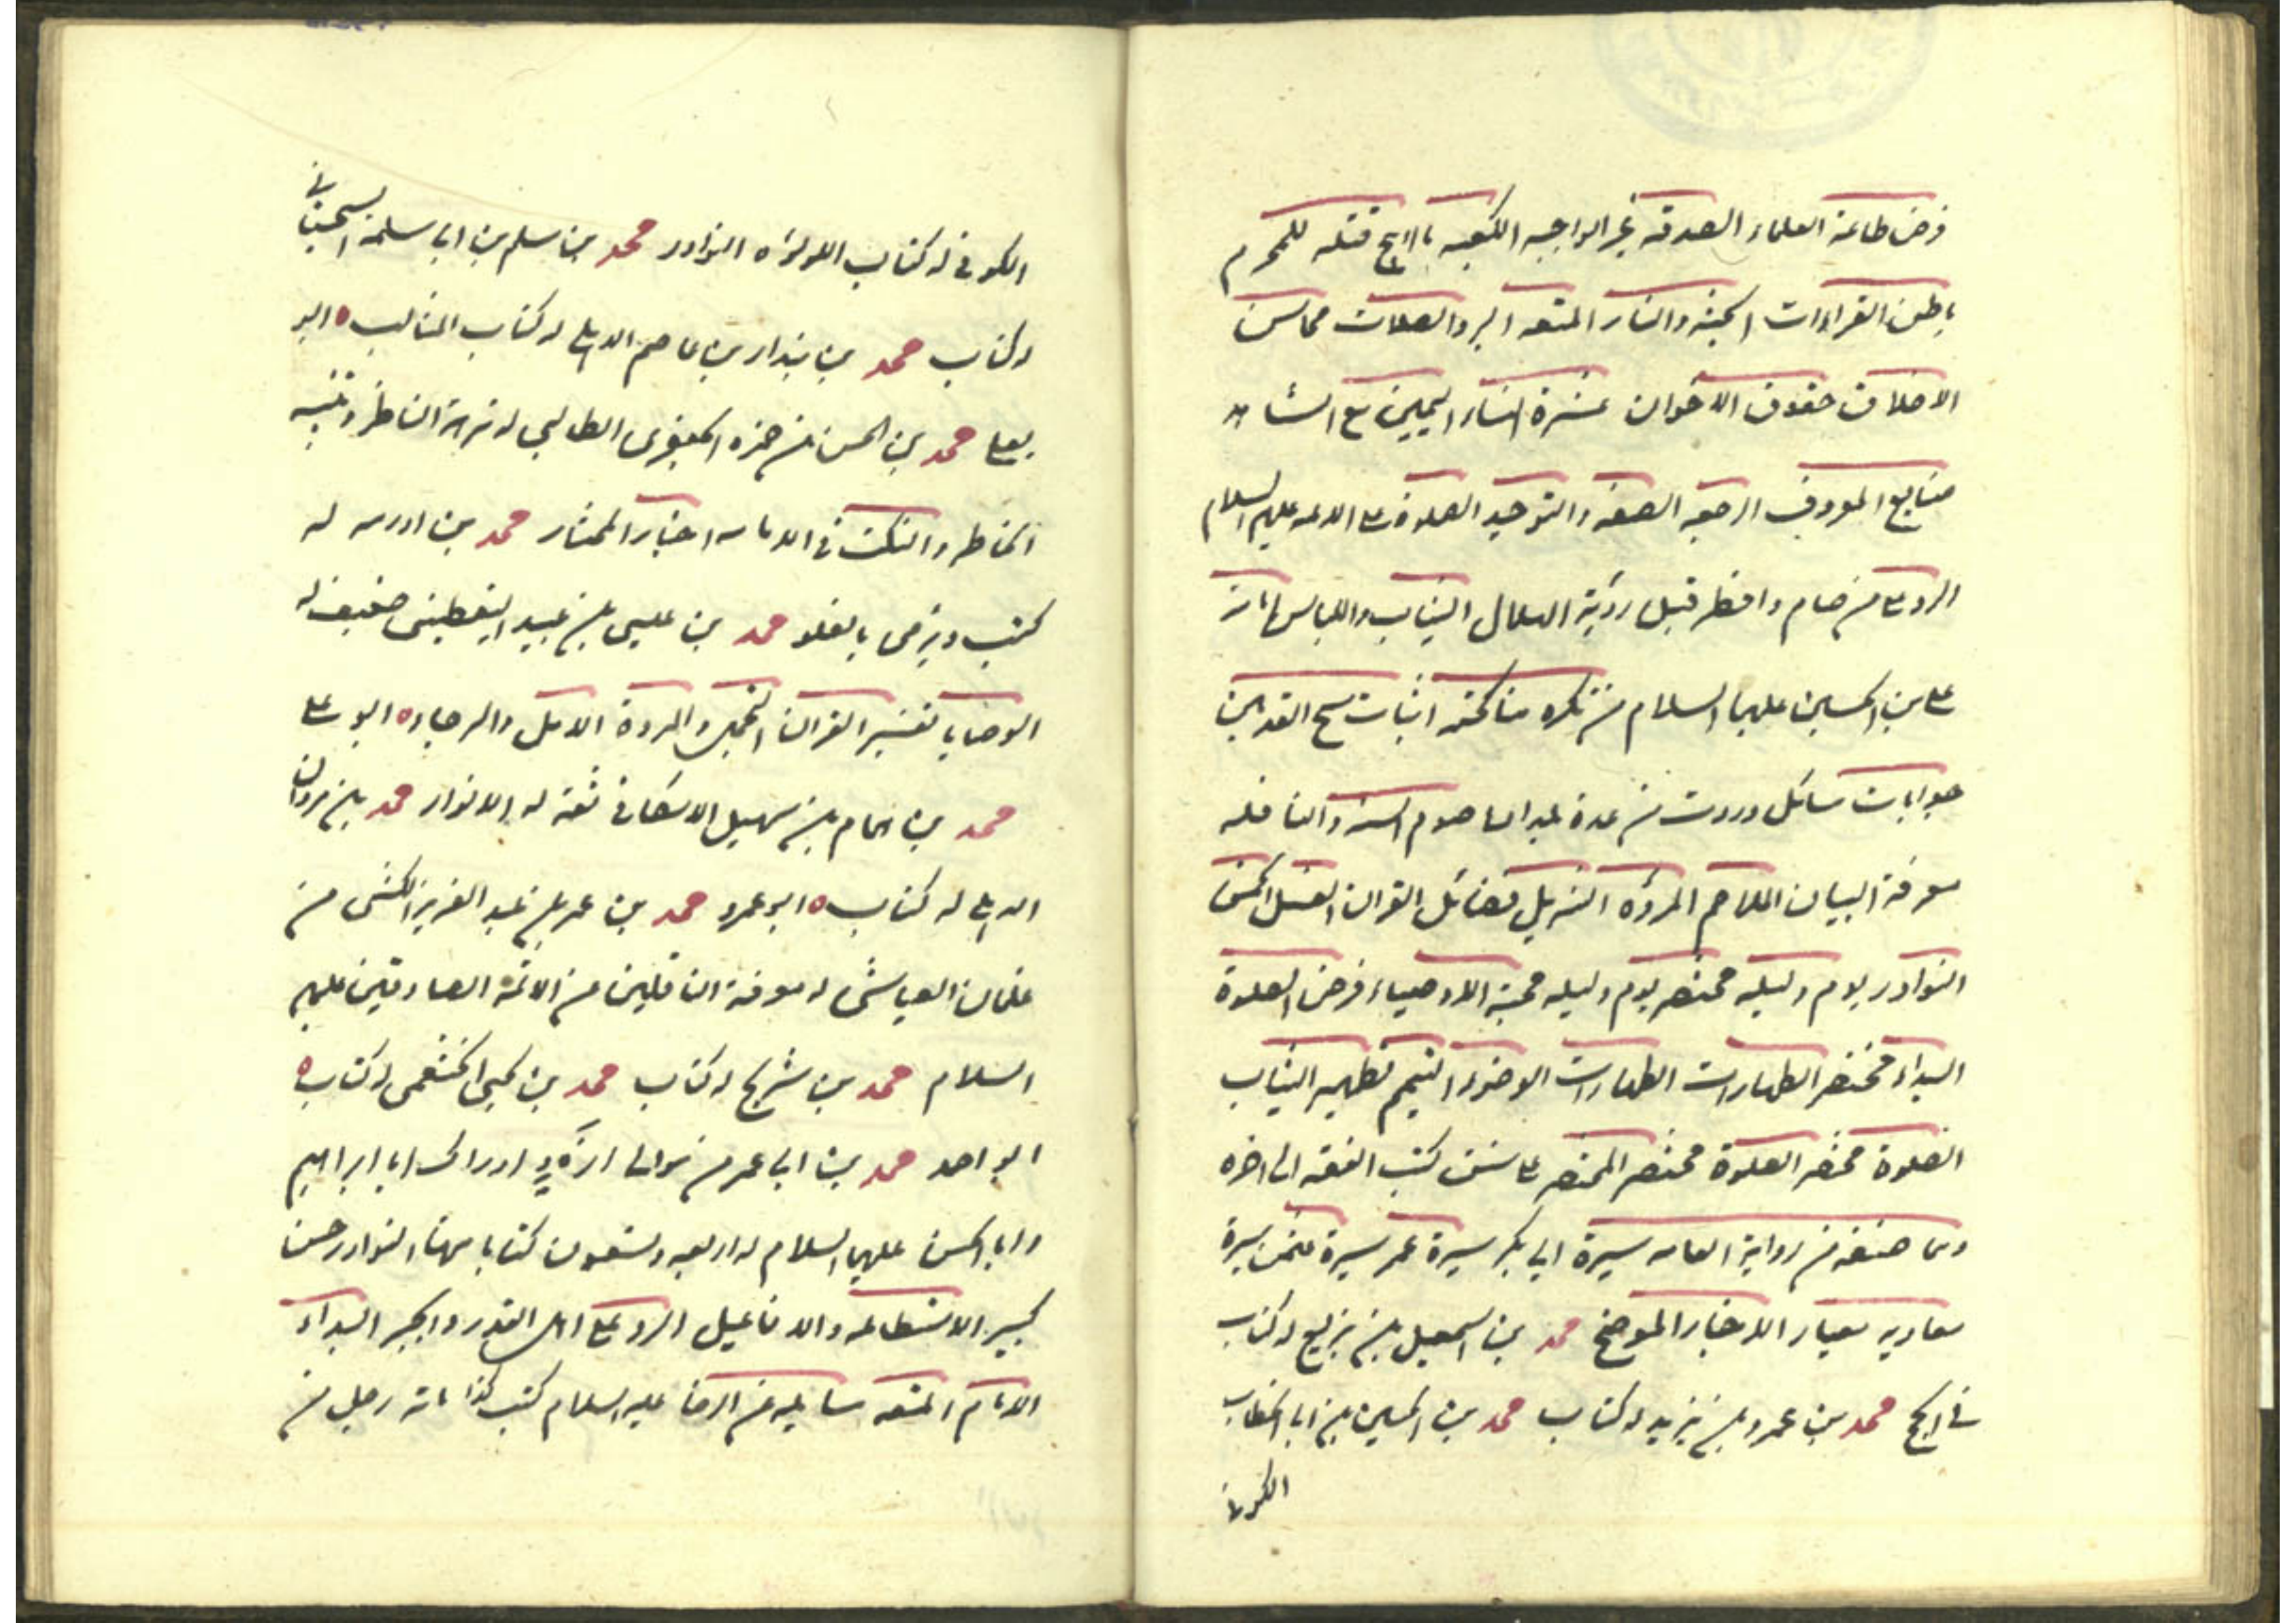 فرض طاعة العلماء الصدقة غير الواجبه الكعبه ما ابيح قتله للمحرم
باطن القراءات الجنة والنار المتعه البر والصلات محاسن
الاخلاق حقوق الاخوان عشرة النساء اليمين مع الشاهد
منابع المعروف الرجعه الصفه والتوحيد الصلوة على الائمه عليهم السلام
الرد على من صام وافطر قبل رؤية الهلال الثياب واللباس امامة
على بن الحسين عليهما السلام من تكره مناكحته اثبات مسح القدمين
جوابات مسائل وردت من عدة بلدان صوم السنة والنافله
معرفة البيان الملاحم المروّه التنزيل فضائل القران الغسل الخمس
النوادر يوم وليله مختصر يوم وليله محبة الاوصياء فرض الصلوة
البداء مختصر الطهارات الطهارات الوضوء التيمم تطهير الثياب
الصلوة مختصر الصلوة مختصر المختصر على سنن كتب الفقه الى اخره
ومما صنفه من رواية العامه سيرة ابي بكر سيرة عمر سيرة عثمن سيرة
معاويه معيار الاخبار الموضح محمد بن اسمعيل بن بزيع له كتاب
في الحج محمد بن عمرو بن يزيد له كتاب محمد بن الحسين بن ابى الخطاب
الكوفي
الكوفي له كتاب اللولؤه النوادر محمد بن سلم بن ابى سلمة السجستاني
له كتاب محمد بن بندار بن عاصم الديلى له كتاب المثالب ه ابو
يعلى محمد بن الحسن بن حمزه الجعفرى الطالبي له نزهة الناظر وتنبيه
الخاطر والنكت في الامامه اخبار المختار محمد بن اورمه له
كتب ويرمى بالغلو محمد بن عيسى بن عبيد اليقطينى ضعيف له
الوصايا تفسير القران التجمل والمروة الامل والرجاء ه ابو على
محمد بن همام بن سهيل الاسكافى ثقة له الانوار محمد بن مروان
الديلى له كتاب ه ابو عمرو محمد بن عمر بن عبد العزيز الكشى من
غلمان العياشى له معرفة الناقلين من الائمة الصادقين عليهم
السلام محمد بن شريح له كتاب محمد بن يحيى الخثعمى له كتاب ه
ابو احمد محمد بن ابى عمير من موالى الازد ادراك ابا ابراهيم
وابا الحسن عليهما السلام له اربعه وتسعون كتابا منها النوادر حسن
كبير الاستطاعه والافاعيل الرد على اهل القدر والجبر البداء
الامام المتعه مسايله عن الرضا عليه السلام كتب كذا مائة رجل من